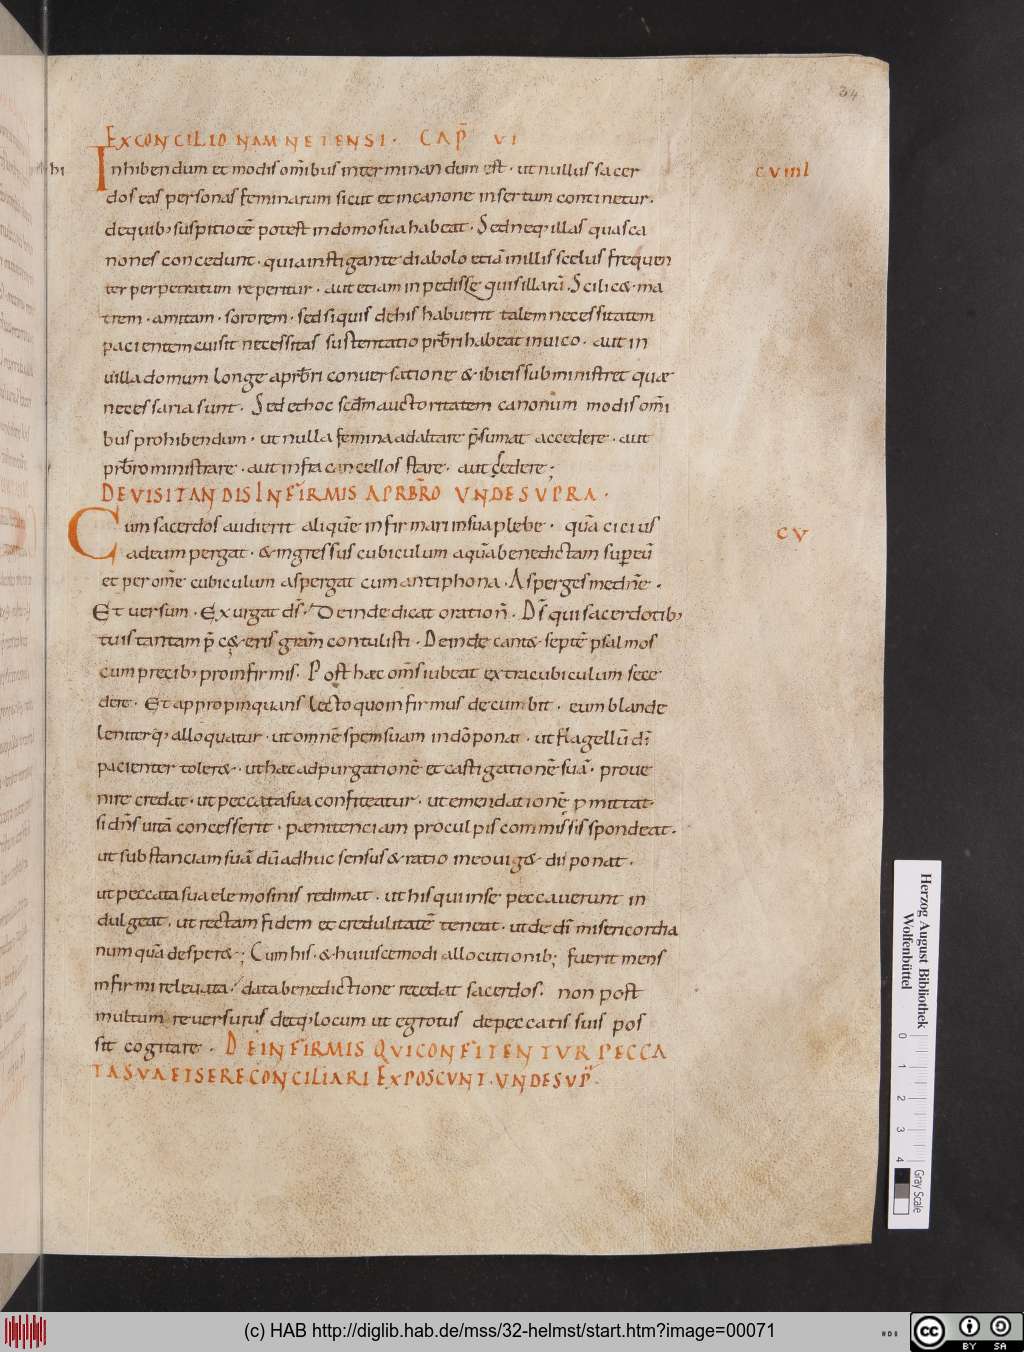 34
EX CONCILIO NAMNETENSI · CAP̄ VI
Inhibendum et modis om̄ibus interminandum est · ut nullus sacer
cviiii
dos eas personas feminarum sicut et in canone insertum continetur ·
de quib; suspitio eē potest in domo sua habeat · Sed neq; illas quas ca
nones concedunt · quia instigante diabolo etiā in illis scelus frequen
ter perpetratum reperitur · aut etiam in pedissequis illarū · Scilic& · ma
trem · amitam · sororem · sed siquis de his habuerit talem necessitatem
pacientem cui sit necessitas sustentatio pr̄bri habeat in uico · aut in
uilla domum longe a pr̄bri conuersatione & ibi eis subministret quæ
necessaria sunt · Sed et hoc scd̄m auctoritatem canonum modis om̄i
bus prohibendum · ut nulla femina ad altare p̄sumat accedere · aut
pr̄bro ministrare · aut infra cancellos stare · aut sedere ;
DE VISITANDIS INFIRMIS A PRBR̄O VNDE SVPRA ·
Cum sacerdos audierit aliquē infirmari in sua plebe · quā cicius
cv
ad eum pergat · & ingressus cubiculum aquā benedictam sup eū
et per om̄e cubiculum aspergat cum antiphona · Asperges me dn̄e ·
Et uersum · Exurgat ds̄ · Deinde dicat oration̄ · Ds̄ qui sacerdotib;
tuis tantam p̄ c&eris grām contulisti · Deinde cant& septē psalmos
cum precib; pro infirmis · Post hæc om̄s iubeat extra cubiculum sece
dere · Et appropinquans lecto quo infirmus decumbit · eum blande
leniterq; alloquatur · ut omnē spem suam in dō ponat · ut flagellū dī
pacienter toler& · ut hæc ad purgationē et castigationē suā · proue
nire credat · ut peccata sua confiteatur · ut emendationē pmittat ·
si dn̄s uitā concesserit · pænitenciam pro culpis commissis spondeat ·
ut substanciam suā dū adhuc sensus & ratio in eo uig& disponat ·
ut peccata sua elemosinis redimat · ut his qui in se peccauerunt in
dulgeat · ut rectam fidem et credulitatē teneat · ut de dī misericordia
numquā desper& ; Cum his · & huiuscemodi allocutionib; fuerit mens
infirmi releuata · data benedictione recedat sacerdos · non post
multum reuersurus deq; locum ut egrotus de peccatis suis pos
sit cogitare · DE INFIRMIS QVI CONFITENTVR PECCA
TA SVA ET SE RECONCILIARI EXPOSCVNT · VNDE SVP̄ ·
Herzog August Bibliothek
Wolfenbüttel
0 1 2 3 4
Gray Scale
(c) HAB http://diglib.hab.de/mss/32-helmst/start.htm?image=00071
cc BY SA